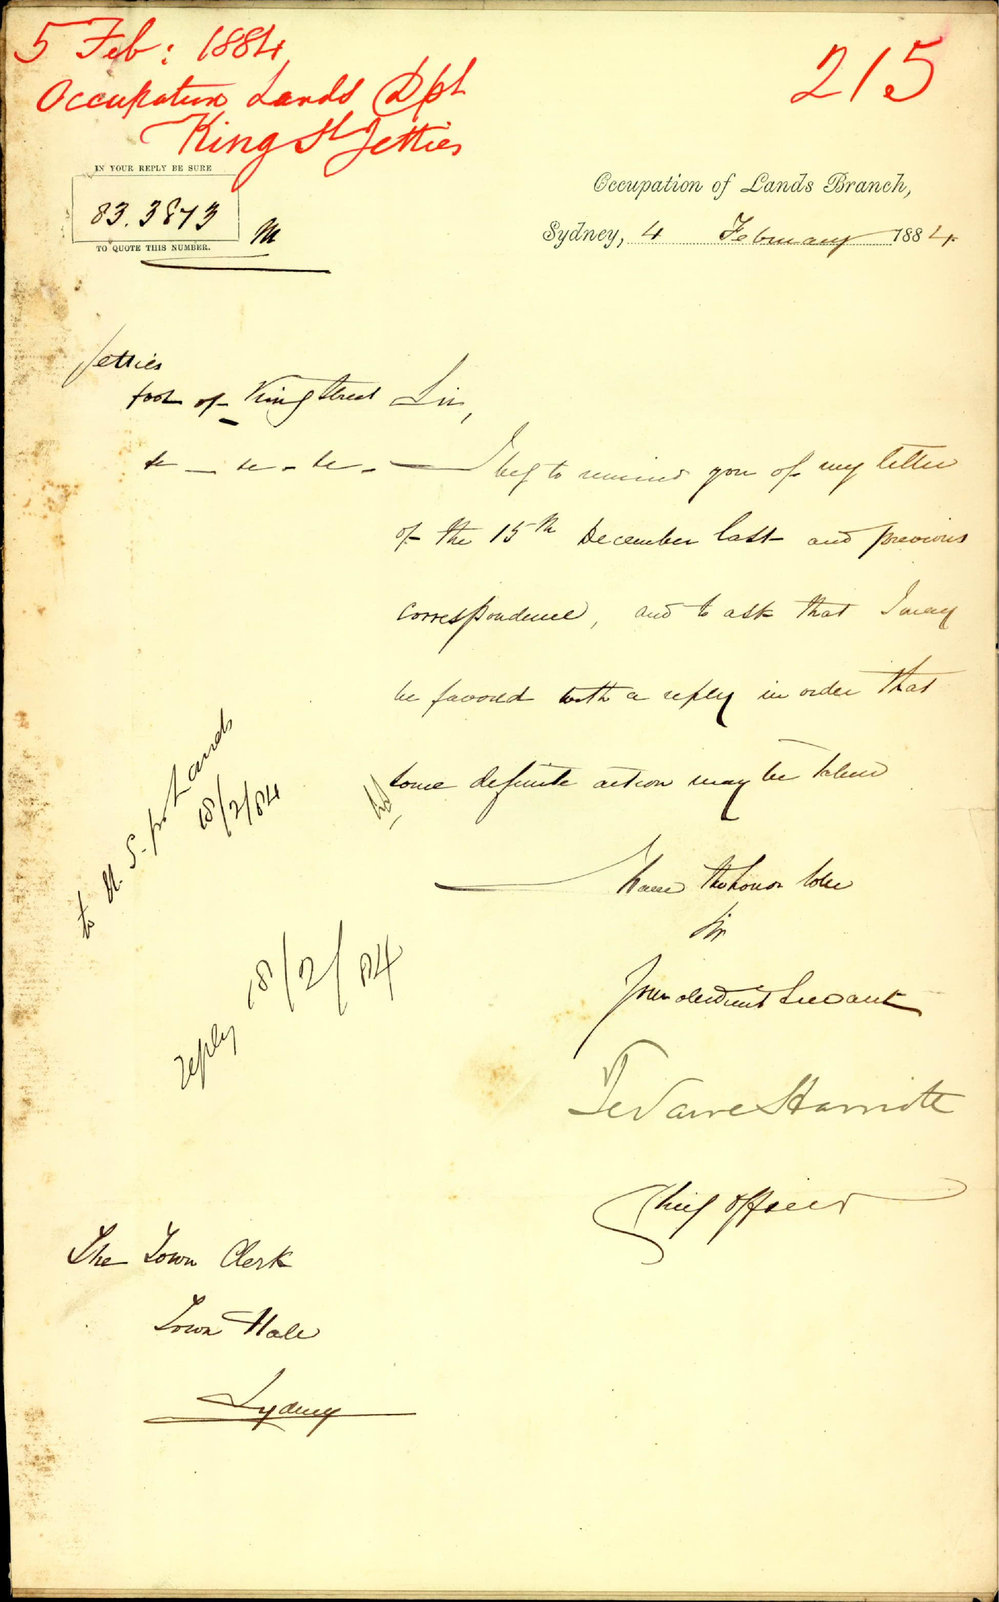 5 Feb: 1884
215
Occupation Lands Dpt
King St Jetties
IN YOUR REPLY BE SURE
83.3873 M
TO QUOTE THIS NUMBER.
Occupation of Lands Branch,
Sydney, 4 February 1884.
Jetties
foot of King Street
Sir,
I beg to remind you of my letter
of the 15th December last and previous
correspondence, and to ask that I may
be favored with a reply in order that
some definite action may be taken
I have the honor to be
Sir
Your obedient Servant
Chief Officer
to U. S. for Lands
18/2/84
reply 18/2/84
The Town Clerk
Town Hall
Sydney